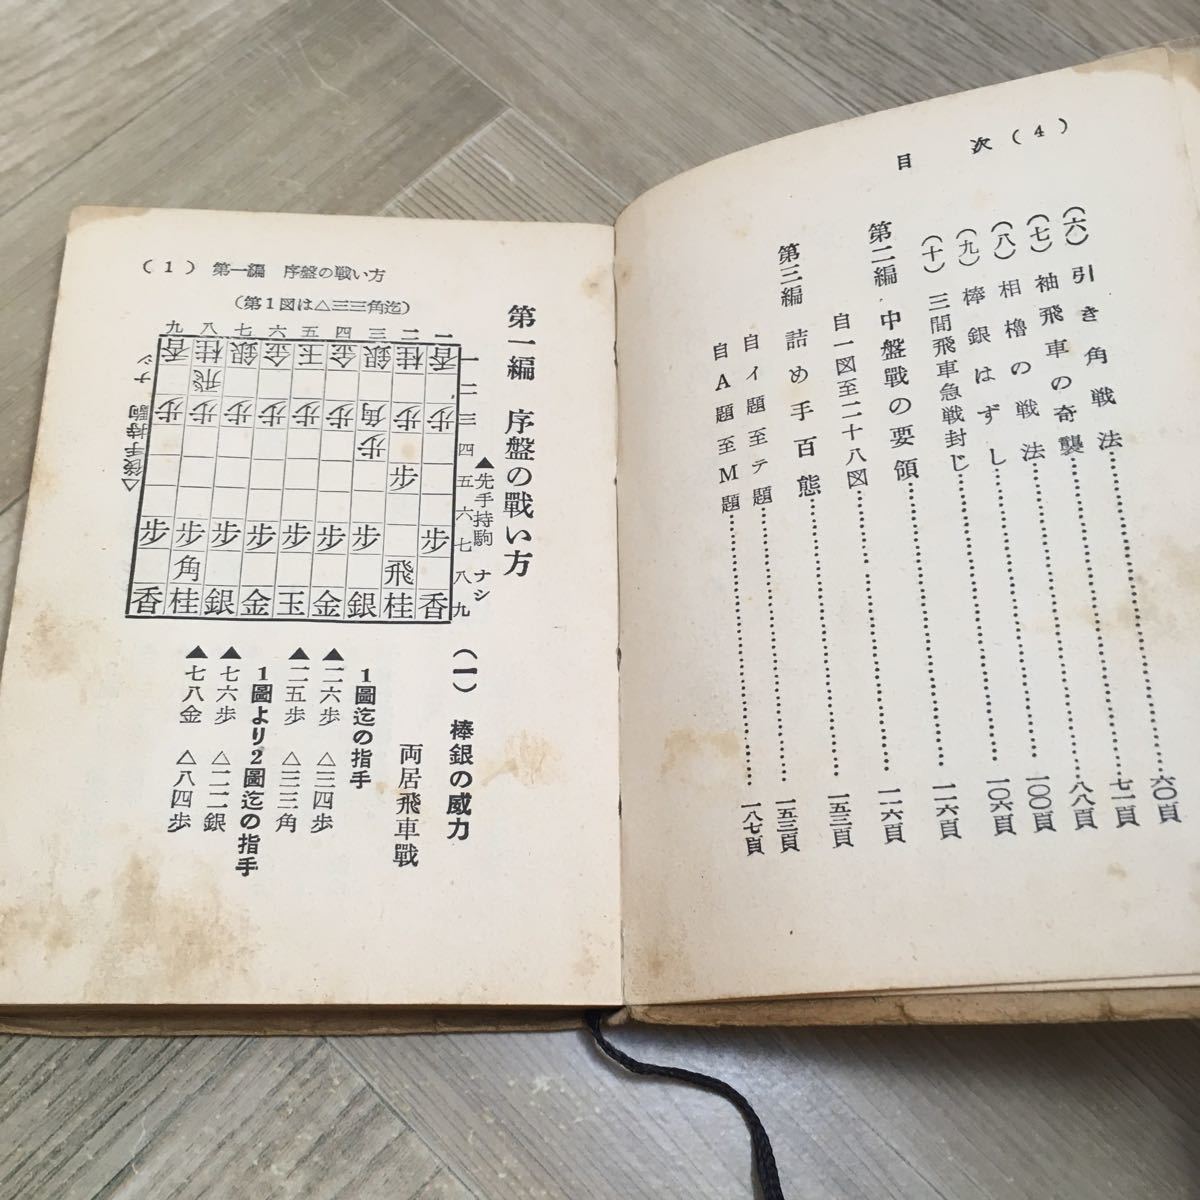 目次(4)
(六)引き角戦法……六〇頁
(七)袖飛車の奇襲……七一頁
(八)相櫓の戦法……八八頁
(九)棒銀はずし……一〇〇頁
(十)三間飛車急戦封じ……一〇六頁
第二編 中盤戰の要領……一二六頁
自一図至二十八図
第三編 詰め手百態……一五三頁
自イ題至テ題……一五三頁
自A題至M題……一八七頁
(1) 第一編 序盤の戦い方
第一編 序盤の戰い方
(一) 棒銀の威力
両居飛車戰
(第1図は△三三角迄)
九八七六五四三二一
香桂銀金玉金銀桂香 一
飛 二
歩歩歩歩歩歩角歩歩 三
歩 四
歩 五
六
歩歩歩歩歩歩歩 七
角飛 八
香桂銀金玉金銀桂香 九
▲先手持駒 ナシ
△後手持駒 ナシ
1圖迄の指手
▲二六歩 △三四歩
▲二五歩 △三三角
1圖より2圖迄の指手
▲七六歩 △二二銀
▲七八金 △八四歩